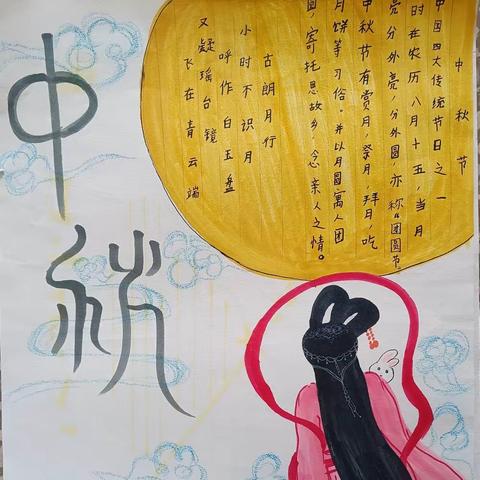 中秋节
中国四大传统节日之一
时在农历八月十五,当月
亮分外亮,分外圆,亦称“团圆节。
中秋节有赏月,祭月,拜月,吃
月饼等习俗。并以月圆寓人团
圆,寄托思故乡,念亲人之情。
古朗月行
小时不识月
呼作白玉盘
又凝瑶台镜
飞在青云端
中秋